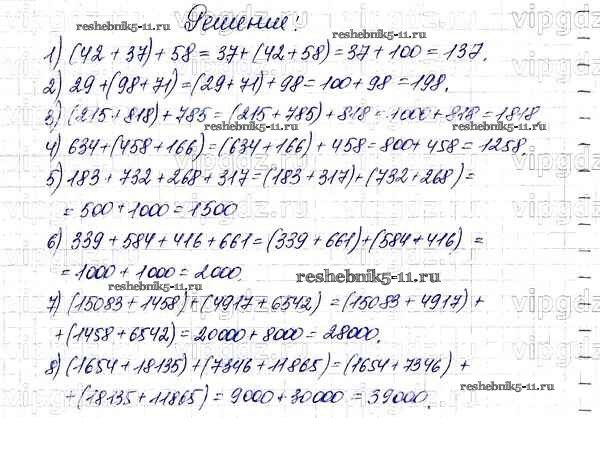 Решение:
1) (42 + 37) + 58 = 37 + (42 + 58) = 37 + 100 = 137.
2) 29 + (98 + 71) = (29 + 71) + 98 = 100 + 98 = 198.
3) (215 + 818) + 785 = (215 + 785) + 818 = 1000 + 818 = 1818
4) 634 + (458 + 166) = (634 + 166) + 458 = 800 + 458 = 1258.
5) 183 + 732 + 268 + 317 = (183 + 317) + (732 + 268) =
= 500 + 1000 = 1500
6) 339 + 584 + 416 + 661 = (339 + 661) + (584 + 416) =
= 1000 + 1000 = 2000.
7) (15083 + 1458) + (4917 + 6542) = (15083 + 4917) +
+ (1458 + 6542) = 20000 + 8000 = 28000.
8) (1654 + 18135) + (7346 + 11865) = (1654 + 7346) +
+ (18135 + 11865) = 9000 + 30000 = 39000.
reshebnik5-11.ru
reshebnik5-11.ru
reshebnik5-11.ru
reshebnik5-11.ru
reshebnik5-11.ru
reshebnik5-11.ru
vipgdz.ru